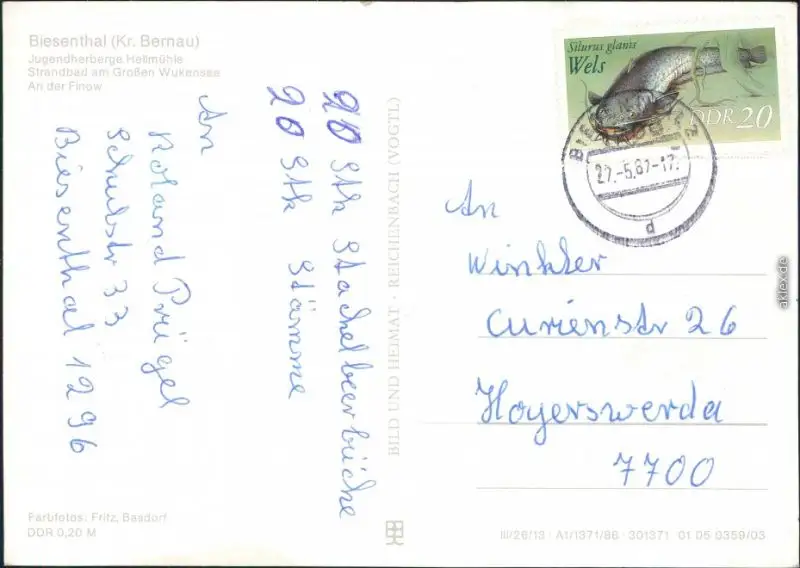 Biesenthal (Kr. Bernau)
Jugendherberge Hellmühle
Strandbad am Großen Wukensee
An der Finow
20 Stk Stachelbeerbüche
20 Stk Stämme
An
Roland Prügel
Schulstr 33
Biesenthal 1296
Farbfotos: Fritz, Basdorf
DDR 0,20 M
BILD UND HEIMAT · REICHENBACH (VOGTL)
Silurus glanis
Wels
DDR 20
27.-5.87-17.
d
An
Winkler
Curienstr 26
Hoyerswerda
7700
III/26/13 · A1/1371/86 · 301371 01 05 0359/03
aklex.de